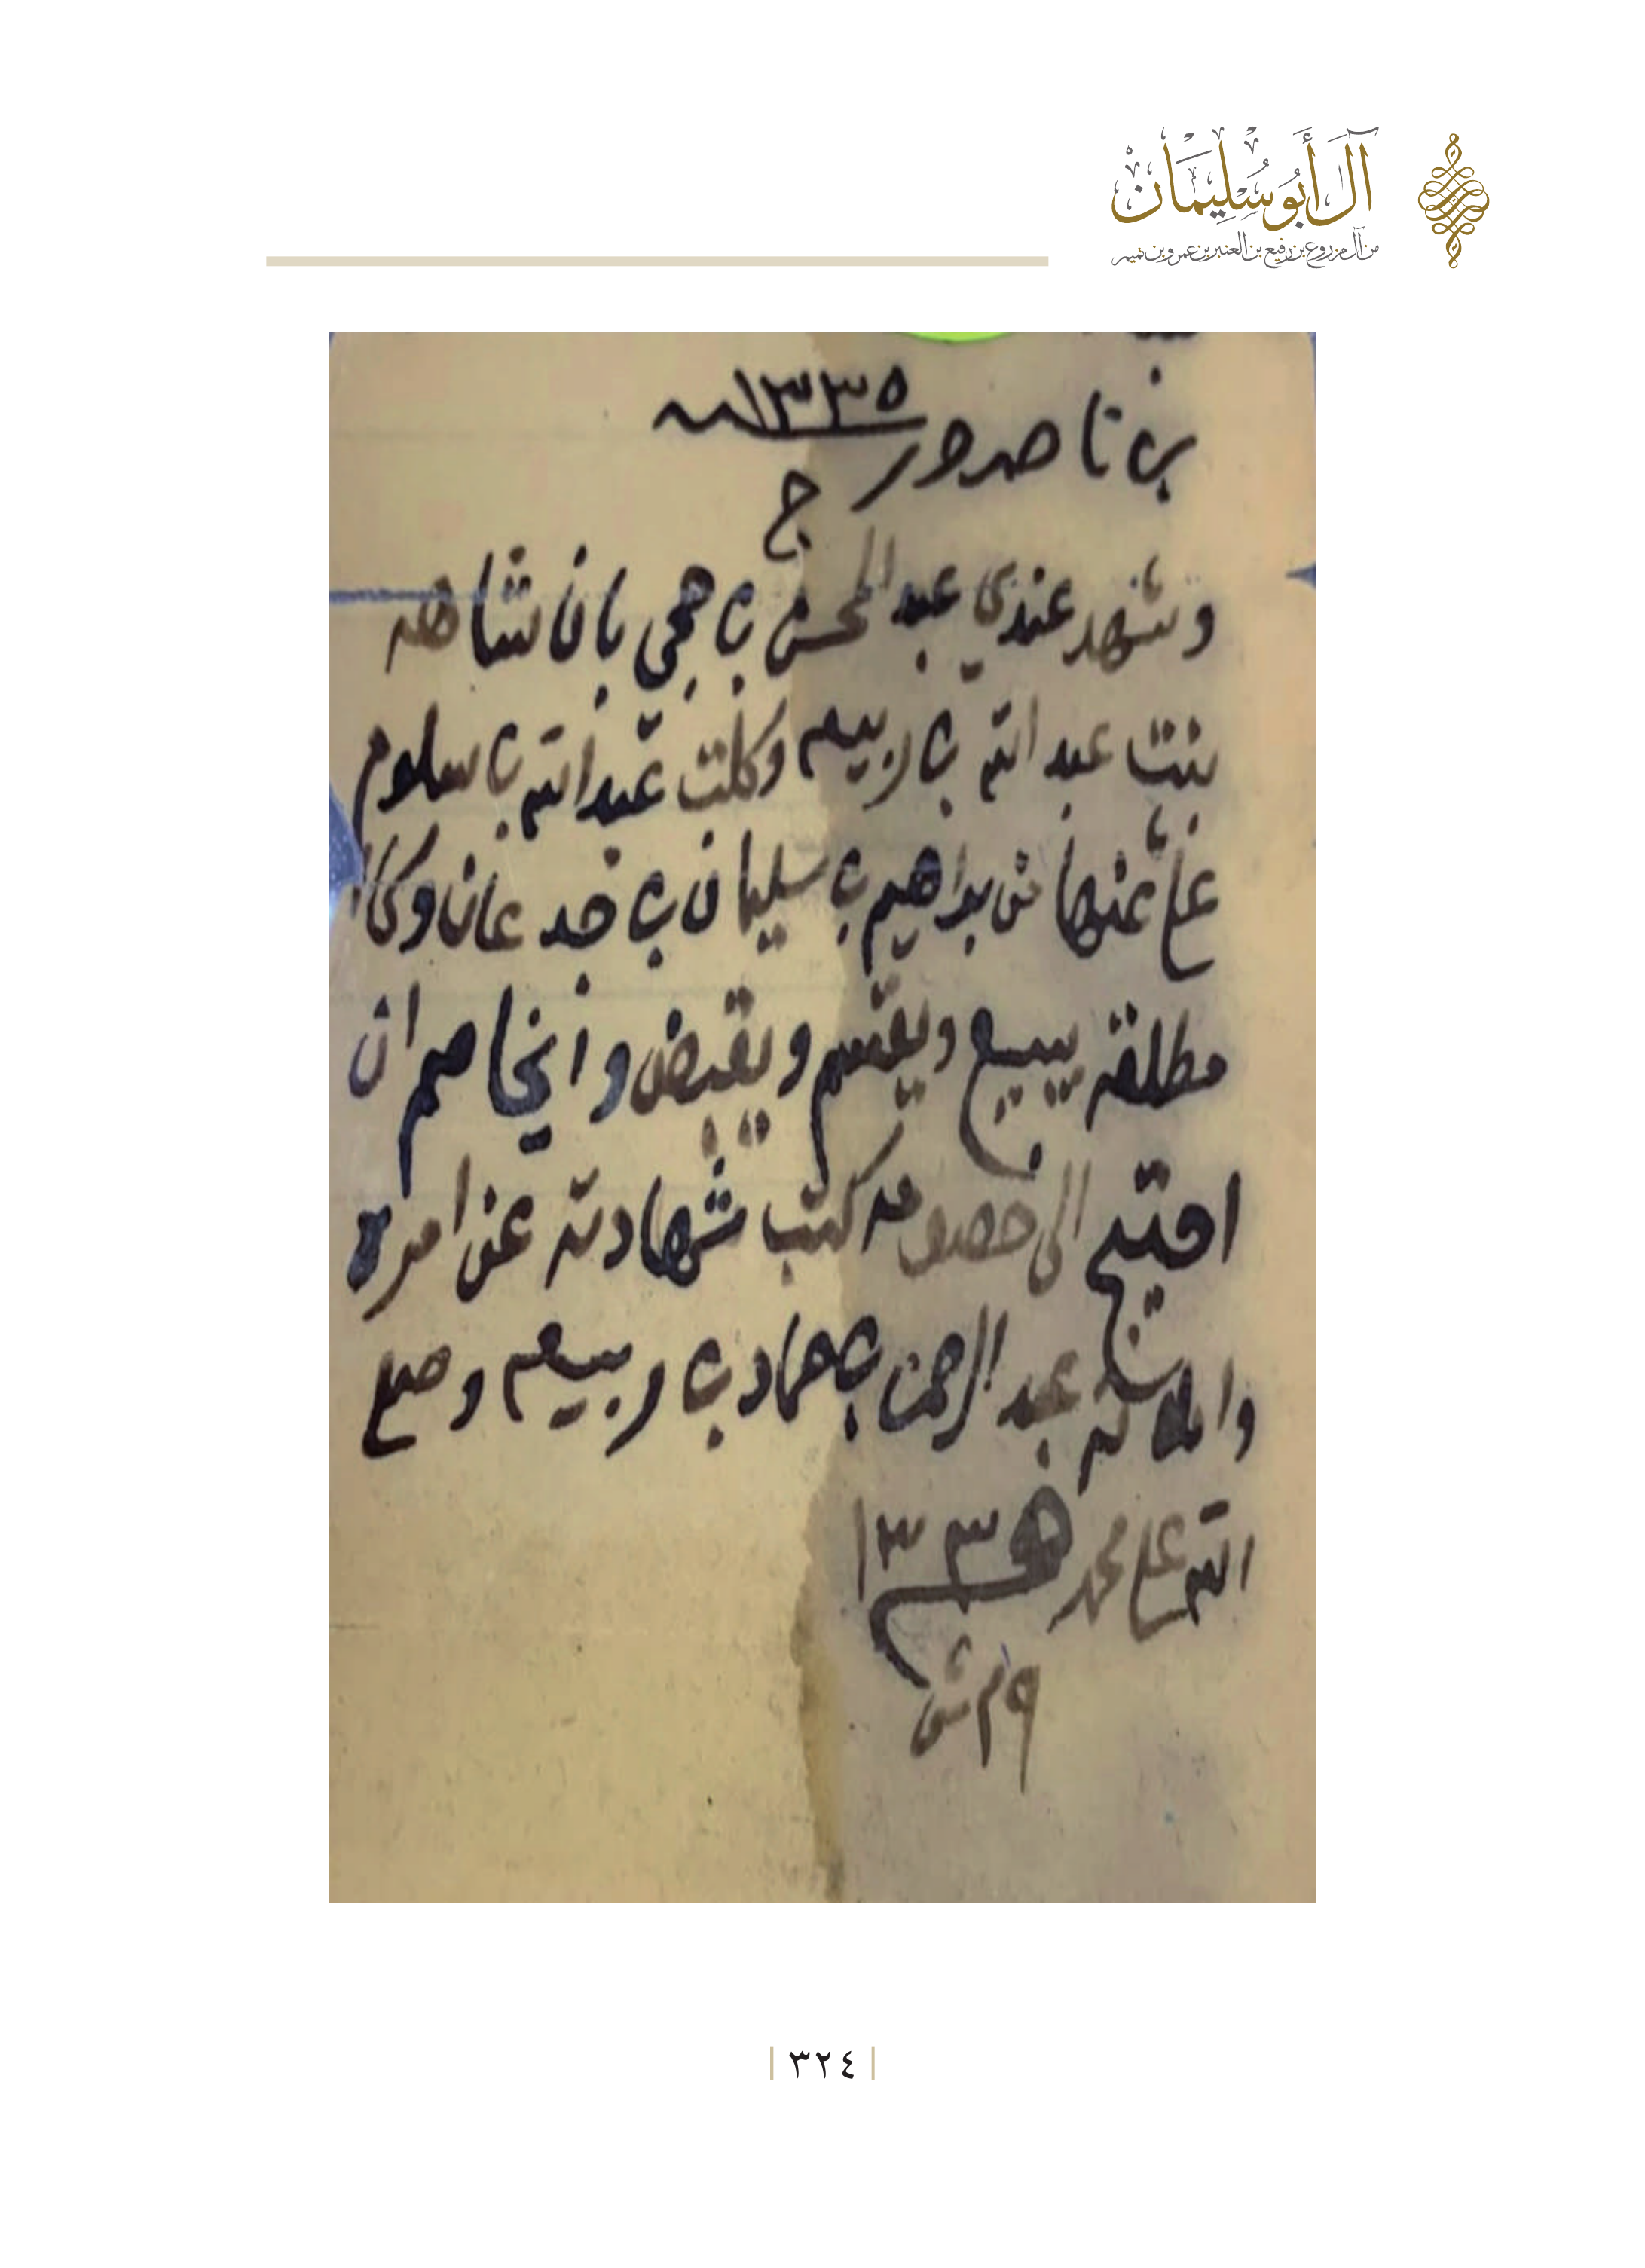 آل أبو سليمان
من آل مزروع بن رفيع بن العنبر بن عمرو بن تميم
بن ناصر ١٣٣٥
ج
وشهد عندي عبدالمحسن بن حجي بان شاهه
بنت عبد الله بن ربيعه وكلت عبدالله بن سلوم
على عن براهيم بن سليمان بن جدعان وكا
مطلقه يبيع ويقسم ويقبض وايخاصم ان
احتيج الى خصومه كتب شهادته عن امره
عبد الرحمن بن حماد بن ربيعه وصلى
الله على محمد ١٣٣٥
ش
٣٢٤